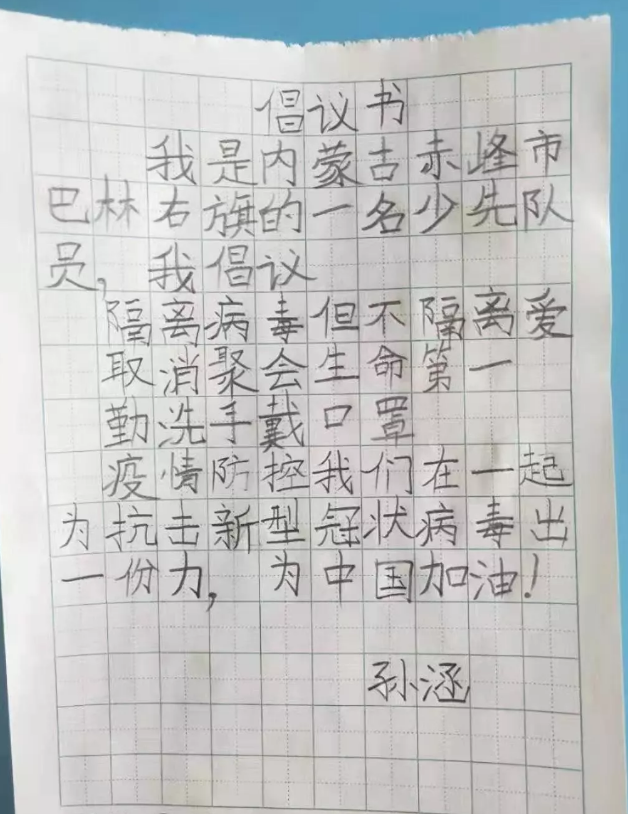 倡议书
我是内蒙古赤峰市
巴林右旗的一名少先队
员，我倡议
隔离病毒但不隔离爱
取消聚会生命第一
勤洗手戴口罩
疫情防控我们在一起
为抗击新型冠状病毒出
一份力，为中国加油！
孙涵